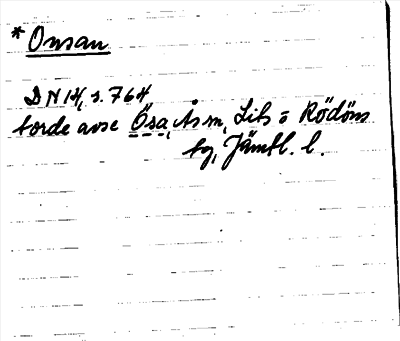 * Onsan
DN 14, s. 764
torde avse Ösa, Ås sn, Lits o Rödöns
tg, Jämtl. l.